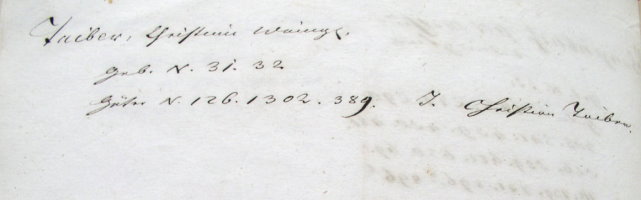 Taiber, Christian
Geb. N. 31. 32
Güter N. 126. 1302. 389. T. Christian Taiber.